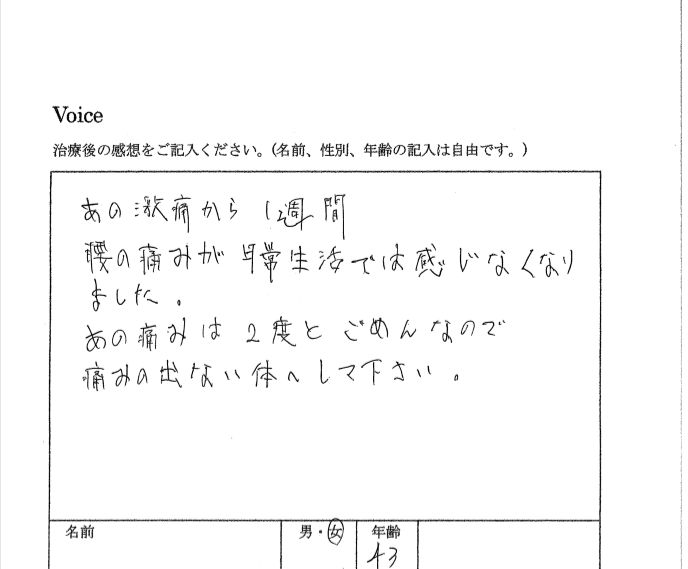 Voice
治療後の感想をご記入ください。(名前、性別、年齢の記入は自由です。)
あの激痛から 1週間
腰の痛みが 日常生活では感じなくなり
ました。
あの痛みは 2度と ごめんなので
痛みの出ない体へして下さい。
名前 男・女 年齢
43